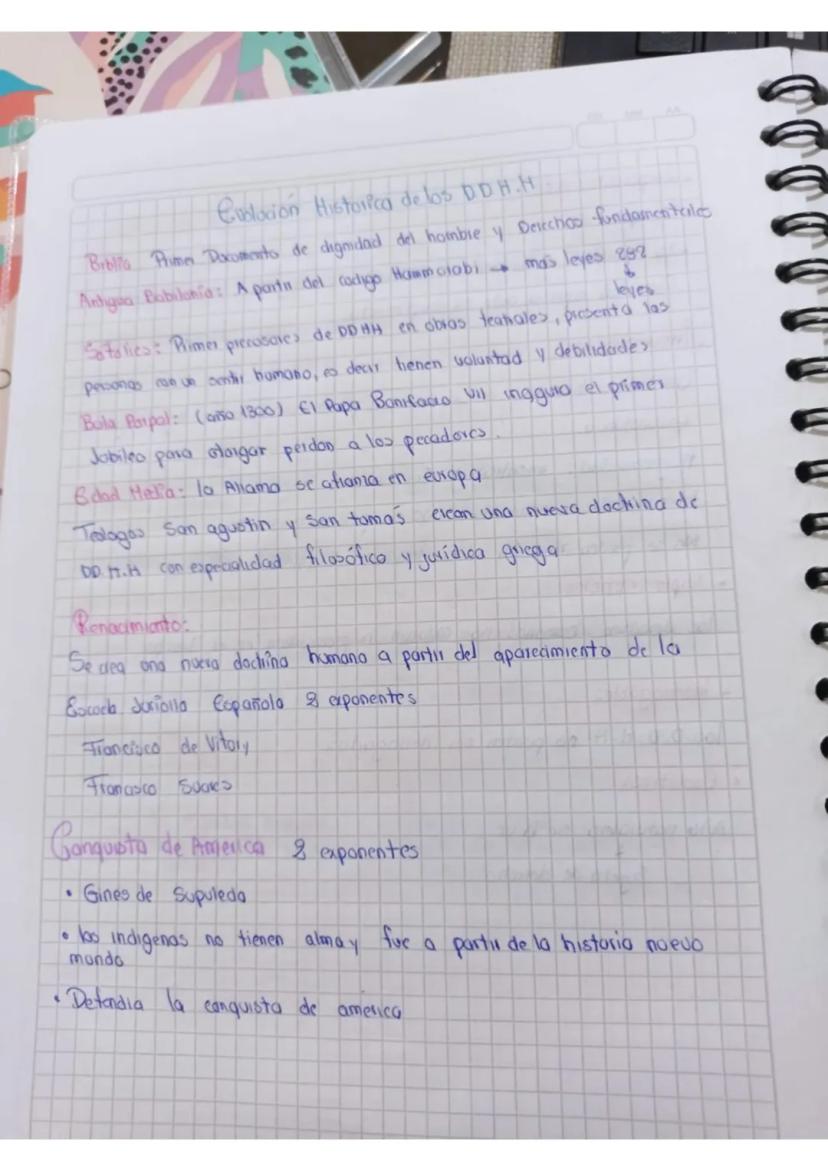 Evolución Historica de los DDH.H
Biblia Primer Documento de dignidad del hombre y Derechos fundamentales
Antigua Babilonia: A partir del codigo Hammorabi → mas leyes 282
↓
leyes
Sofolies: Primer precusores de DDHH en obras teatrales, presenta las
personas con un sentir humano, es decir tienen voluntad y debilidades
Bula Parpal: (año 1300) El Papa Bonifacio VII inagura el primer
Jubileo para otorgar perdon a los pecadores.
Edad Media: la Allama se afianza en europa
Teologos San agustin y San tomás crean una nueva doctrina de
DD.H.H con especialidad filosófico y jurídica griega
Renacimiento:
Se crea una nueva doctrina humano a partir del aparecimiento de la
Escuela Española 2 exponentes
Francisco de Vitory
Francisco Suares
Conquista de America 2 exponentes
• Gines de Supuleda
• los indigenas no tienen alma y fue a partir de la historia nuevo
mundo
• Defendia la conquista de america